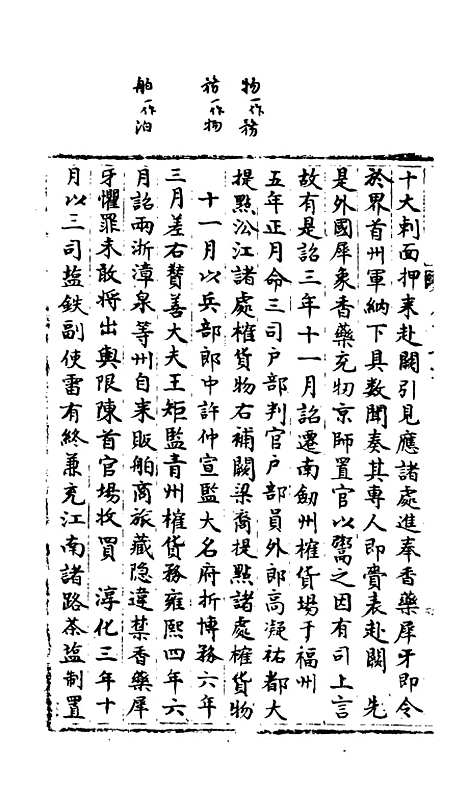 物一作務
務一作物
舶一作泊
十大刺面押来赴闕引見應諸處進奉香藥犀牙即令
於界首州軍納下具数聞奏其專人即賫表赴闕　先
是外國犀象香藥充牣京師置官以鬻之因有司上言
故有是詔三年十一月詔遷南劔州榷貨場于福州
五年正月命三司户部判官户部員外郎高凝祐都大
提點㳂江諸處榷貨物右補闕梁裔提點諸處榷貨物
十一月以兵部郎中許仲宣監大名府折博務六年
三月差右贊善大夫王矩監青州榷貨務雍熙四年六
月詔兩浙漳泉等州自来販舶商旅藏隐違禁香藥犀
牙懼罪未敢将出與限陳首官場收買　淳化三年十
月以三司盐鉄副使雷有終兼充江南諸路茶盐制置